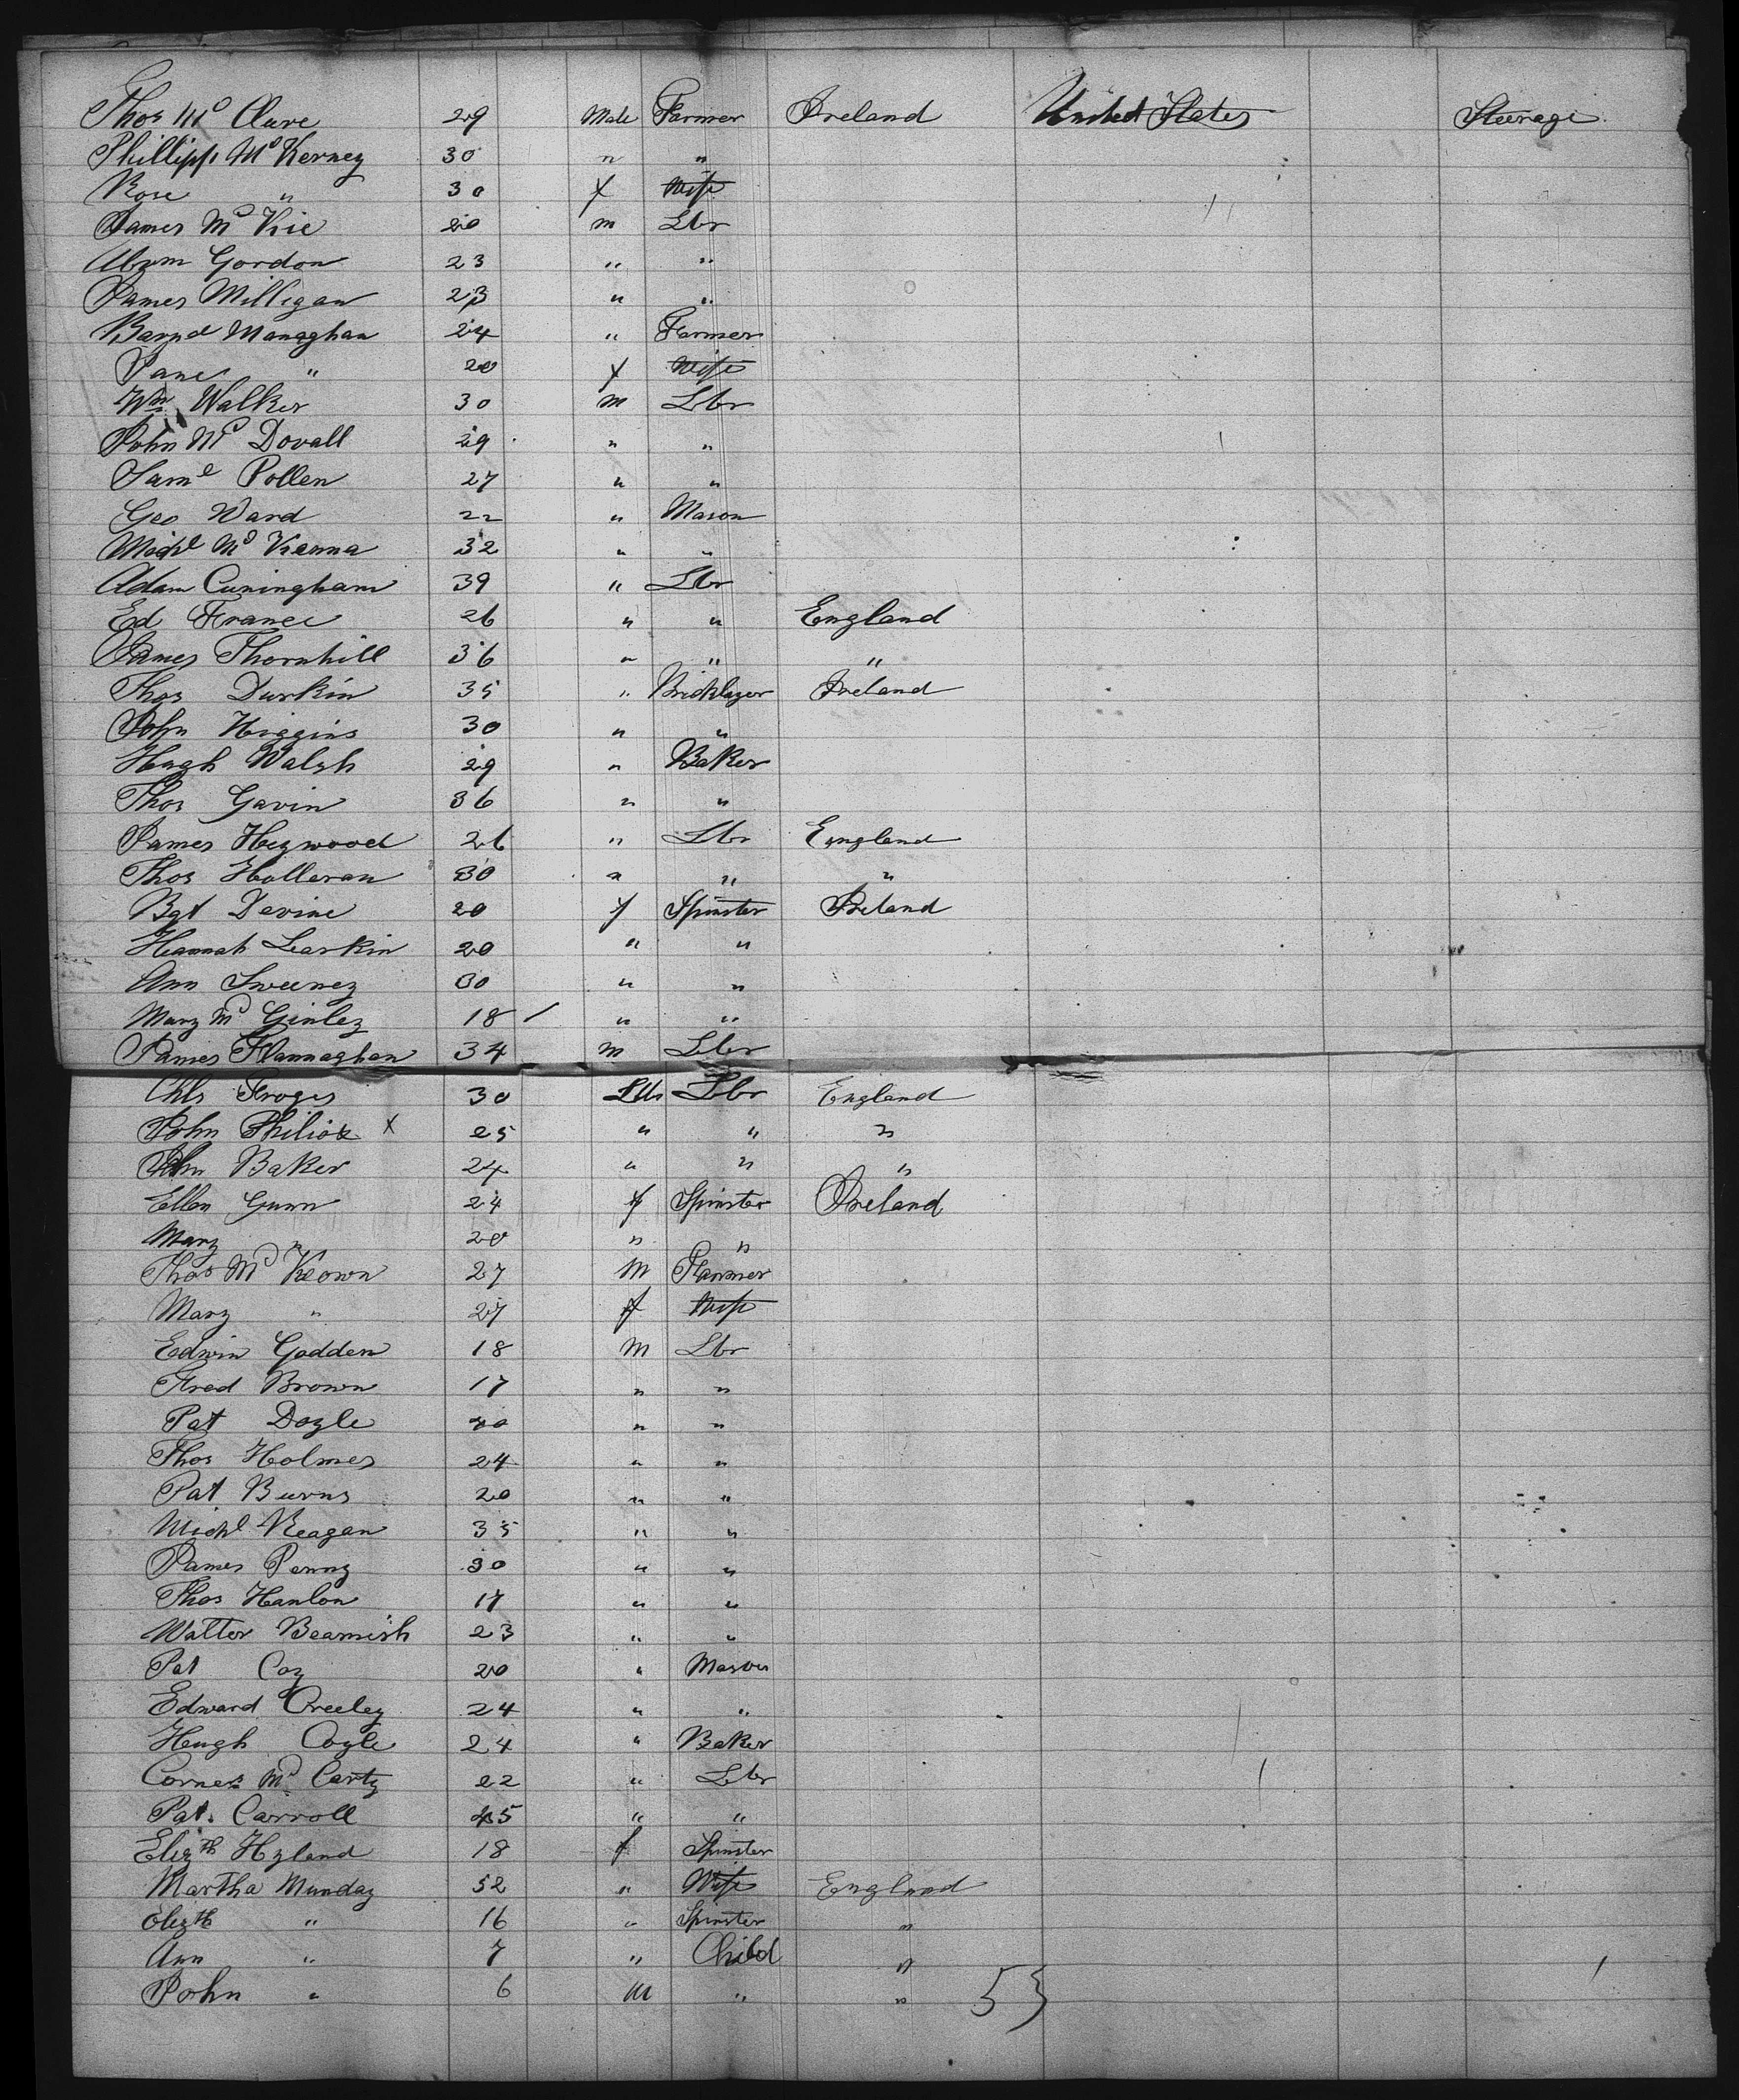 Thos McClure 29 Male Farmer Ireland United States Steerage
Phillip McKerney 30 " "
Rose " 30 f Wife
James McKie 20 m Lbr
Abrm Gordon 23 " "
James Milligan 23 " "
Barnd Managhan 24 " Farmer
Jane " 20 f Wife
Wm Walker 30 m Lbr
John McDovall 29 " "
Saml Pollen 27 " "
Geo Ward 22 " Mason
Michl McKenna 32 " "
Adam Cuningham 39 " Lbr
Ed France 26 " " England
James Thornhill 36 " " "
Thos Durkin 35 " Bricklayer Ireland
John Higgins 30 " "
Hugh Walsh 29 " Baker
Thos Gavin 36 " "
James Heywood 26 " Lbr England
Thos Holleran 30 " " "
Bgt Devine 20 f Spinster Ireland
Hannah Larkin 20 " "
Ann Sweeney 30 " "
Mary McGinley 18 / " "
James Flannaghan 34 m Lbr
Chls 30 Lbr England
John x 25 " " "
John Baker 24 " " "
Ellen Gunn 24 f Spinster Ireland
Mary " 20 " "
Thos McKeown 27 M Farmer
Mary " 27 f Wife
Edwin Godden 18 M Lbr
Fred Brown 17 " "
Pat Doyle " "
Thos Holmes 24 " "
Pat Burns 20 " "
Michl Reagan 35 " "
James Penny 30 " "
Thos Hanlon 17 " "
Walter Beamish 23 " "
Pat Coy 20 " Mason
Edward Creeley 24 " "
Hugh Coyle 24 " Baker
Cornes McCarty 22 " Lbr
Pat. Carroll 45 " "
Elizth Hyland 18 f Spinster
Martha Munday 52 " Wife England
Elizth " 16 " Spinster "
Ann " 7 " Child "
John " 6 M " " 53